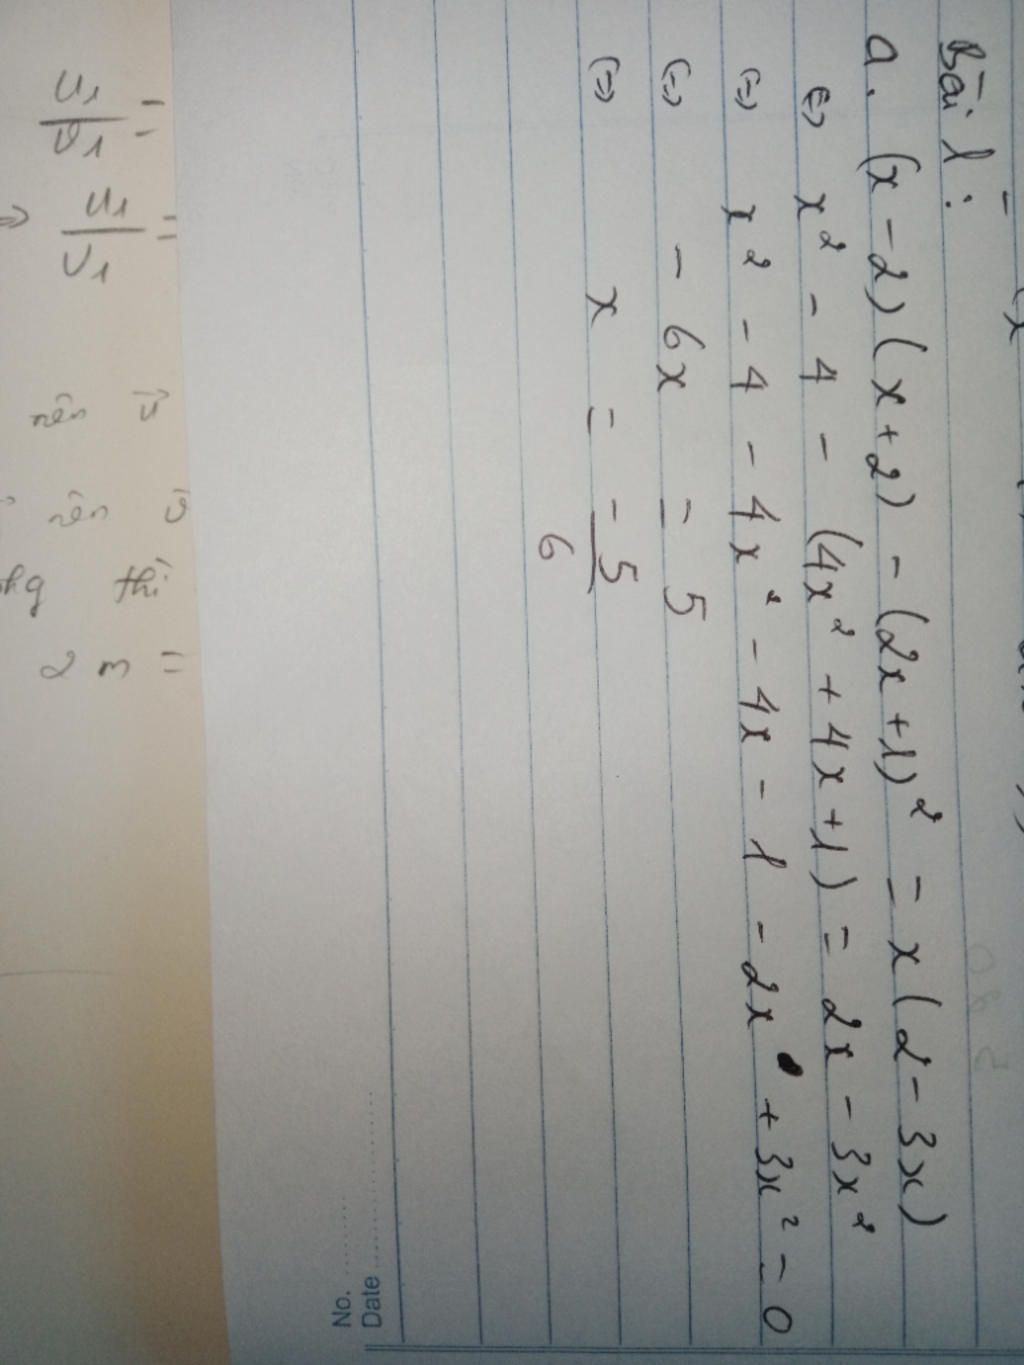 Bài 1:
a. (x - 2)(x + 2) - (2x + 1)² = x(2 - 3x)
(=) x² - 4 - (4x² + 4x + 1) = 2x - 3x²
(=) x² - 4 - 4x² - 4x - 1 - 2x + 3x² = 0
(=) - 6x = 5
(=) x = -5/6
No.
Date
u₁/v₁ =
=> u₁/v₁ =
nên ū
nên v̄
thì
2 m =